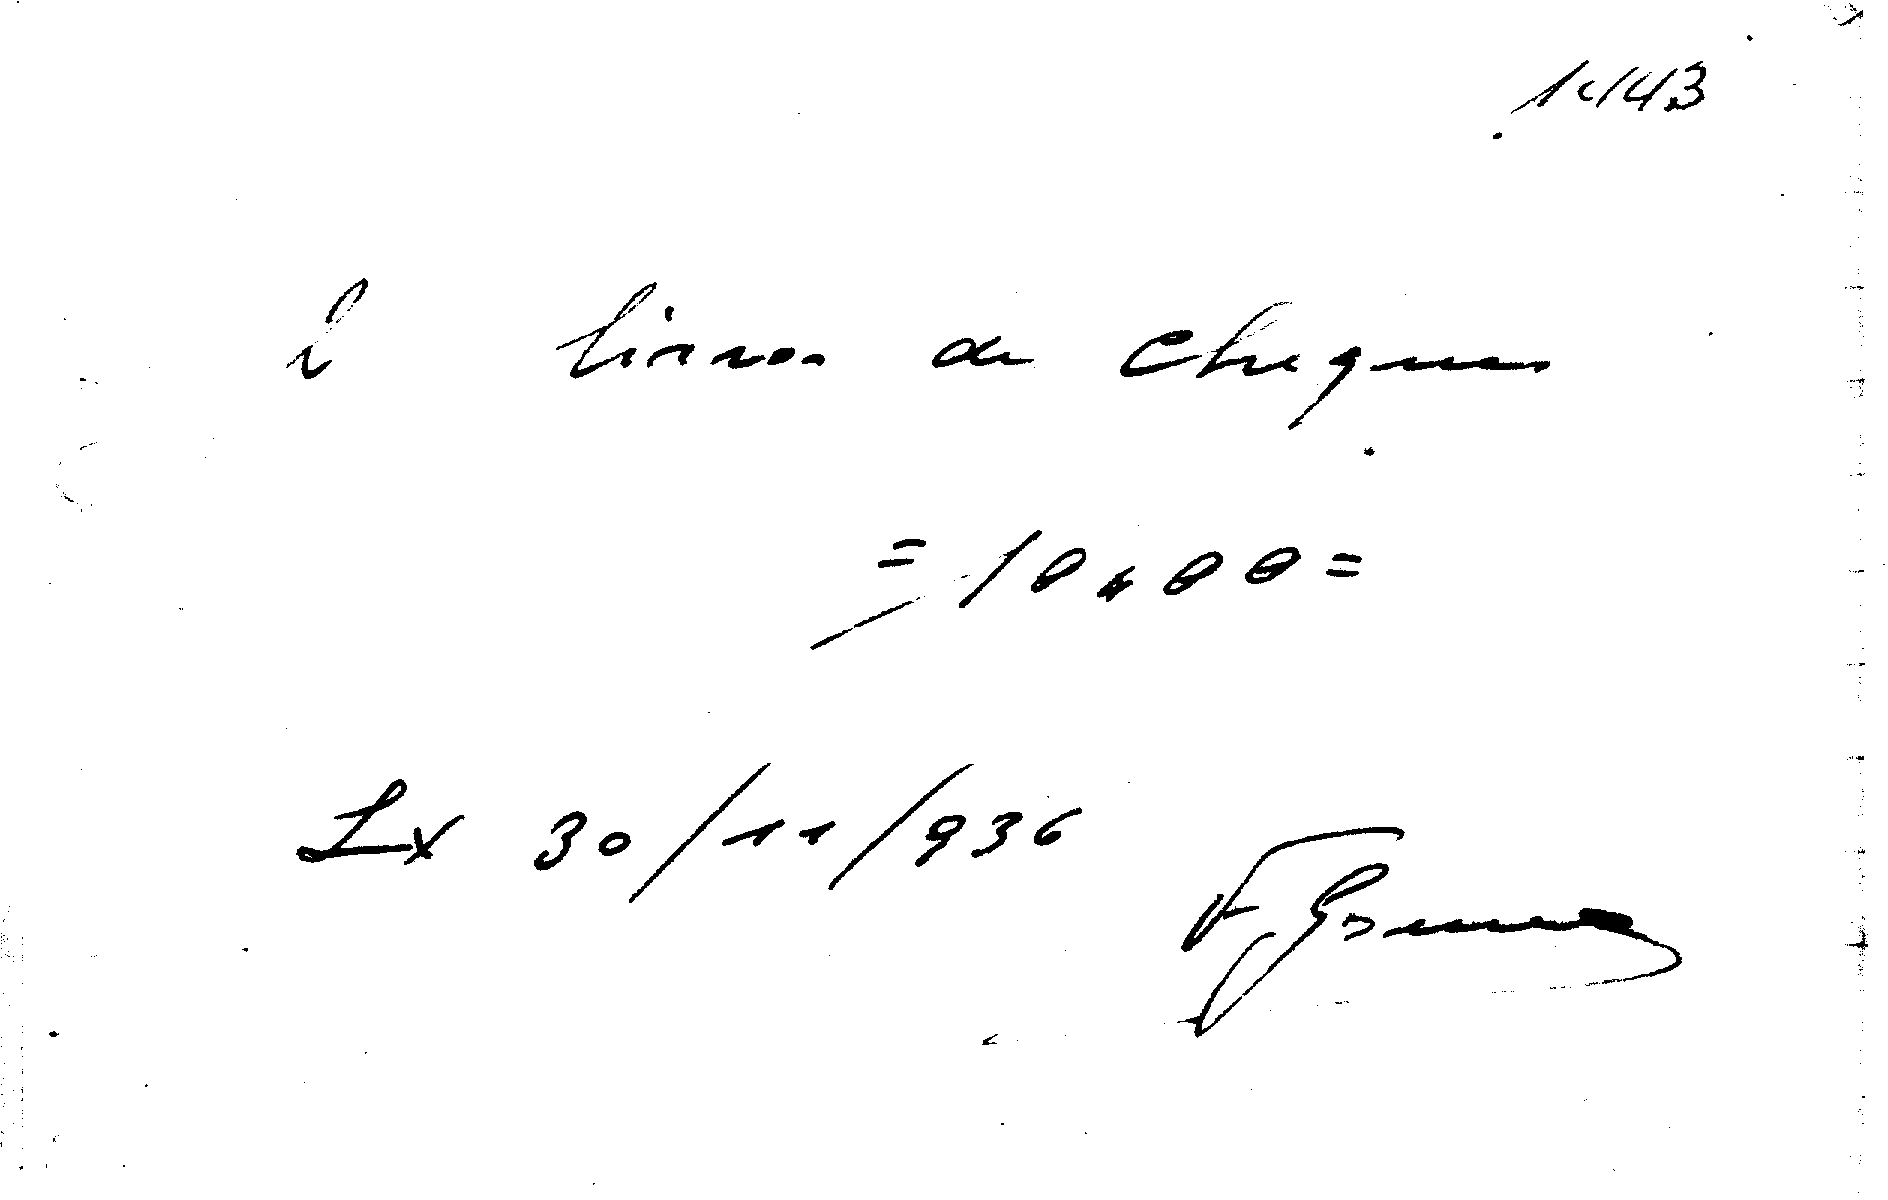 1443
2 livros de cheques
= 10,00 =
Lx 30/11/936